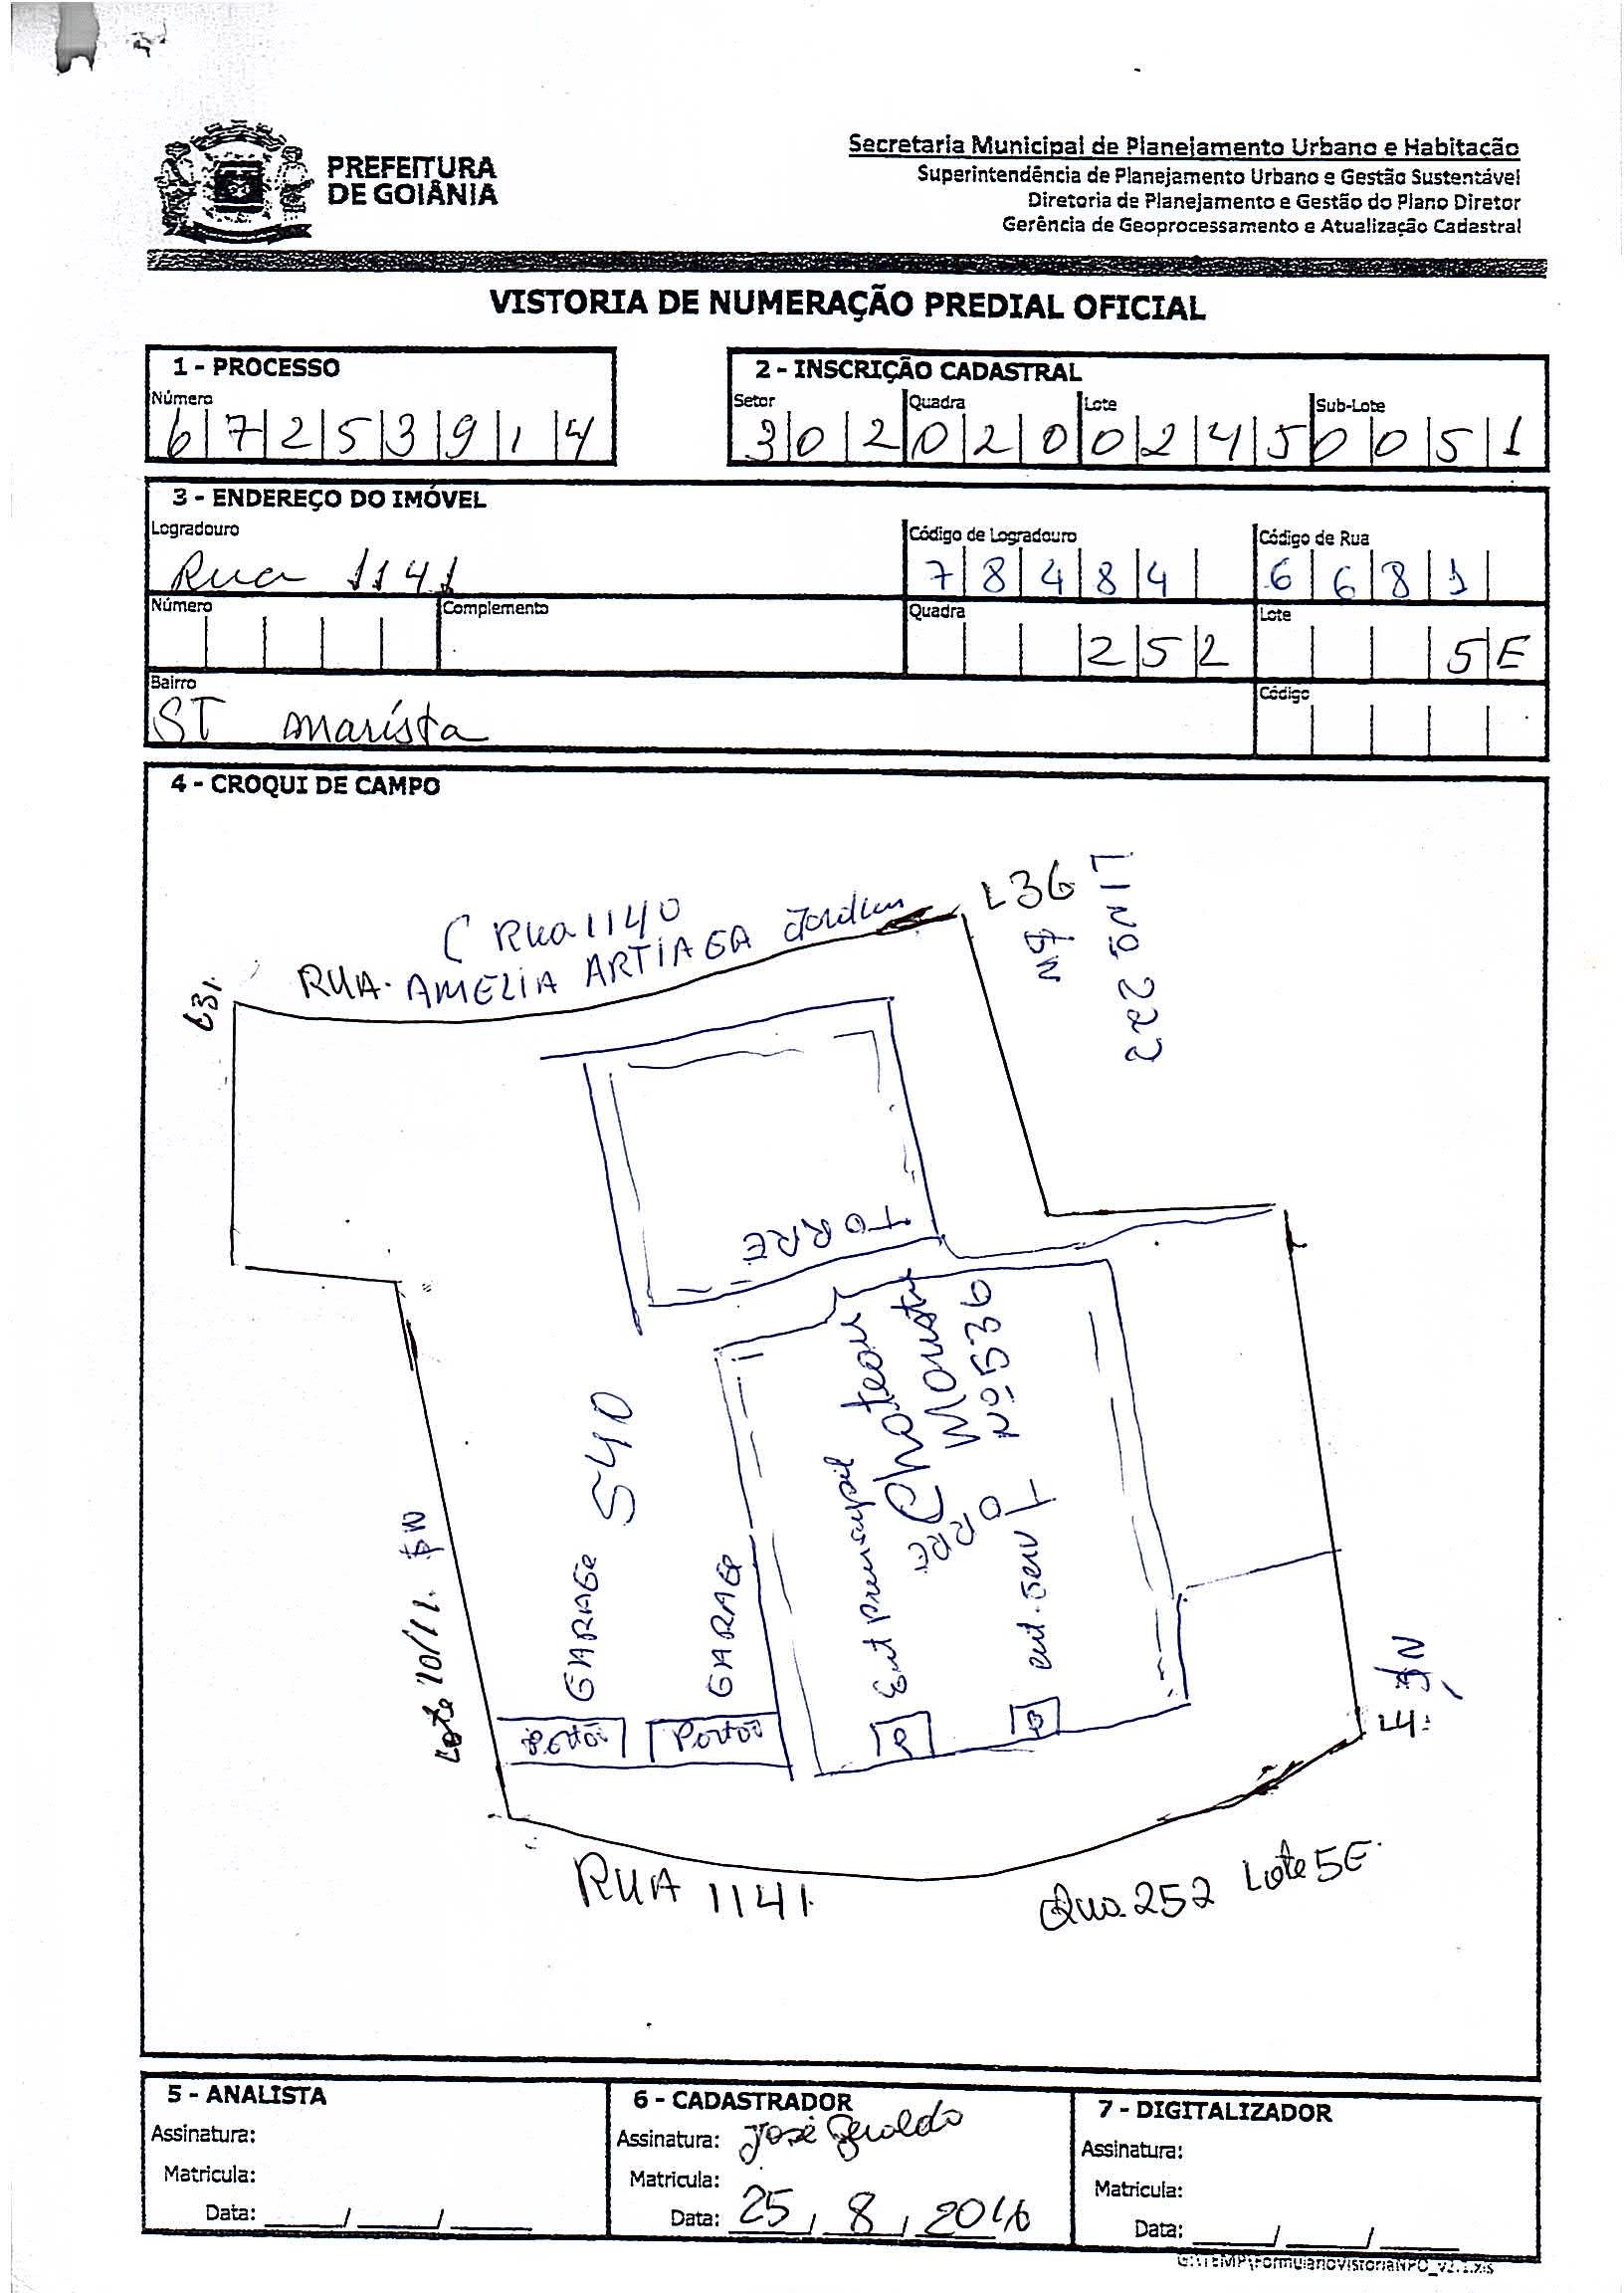 PREFEITURA
DE GOIÂNIA
Secretaria Municipal de Planejamento Urbano e Habitação
Superintendência de Planejamento Urbano e Gestão Sustentável
Diretoria de Planejamento e Gestão do Plano Diretor
Gerência de Geoprocessamento e Atualização Cadastral
VISTORIA DE NUMERAÇÃO PREDIAL OFICIAL
1 - PROCESSO
Número
6 7 2 5 3 9 1 4
2 - INSCRIÇÃO CADASTRAL
Setor Quadra Lote Sub-Lote
3 0 2 0 2 0 0 2 4 5 0 0 5 1
3 - ENDEREÇO DO IMÓVEL
Logradouro Código de Logradouro Código de Rua
Rua 1141 7 8 4 8 4 6 6 8 1
Número Complemento Quadra Lote
2 5 2 5 E
Bairro Código
ST Marista
4 - CROQUI DE CAMPO
L36
LI Nº 222
( Rua 1140
RUA. AMELIA ARTIAGA Jardim
L31.
TORRE
Chateau
Nº 536
TORRE
540
Ent principal
ent. serv
GARAGE
GARAGE
Lote 10/11.
Portão
Portão
L4.
RUA 1141.
Qua. 252 Lote 5E.
5 - ANALISTA
Assinatura:
Matricula:
Data: ____/____/____
6 - CADASTRADOR
Assinatura: José Geraldo
Matricula:
Data: 25 / 8 / 2016
7 - DIGITALIZADOR
Assinatura:
Matricula:
Data: ____/____/____
G:\TEMP\FormularioVistoriaNPO_v2.1.xls